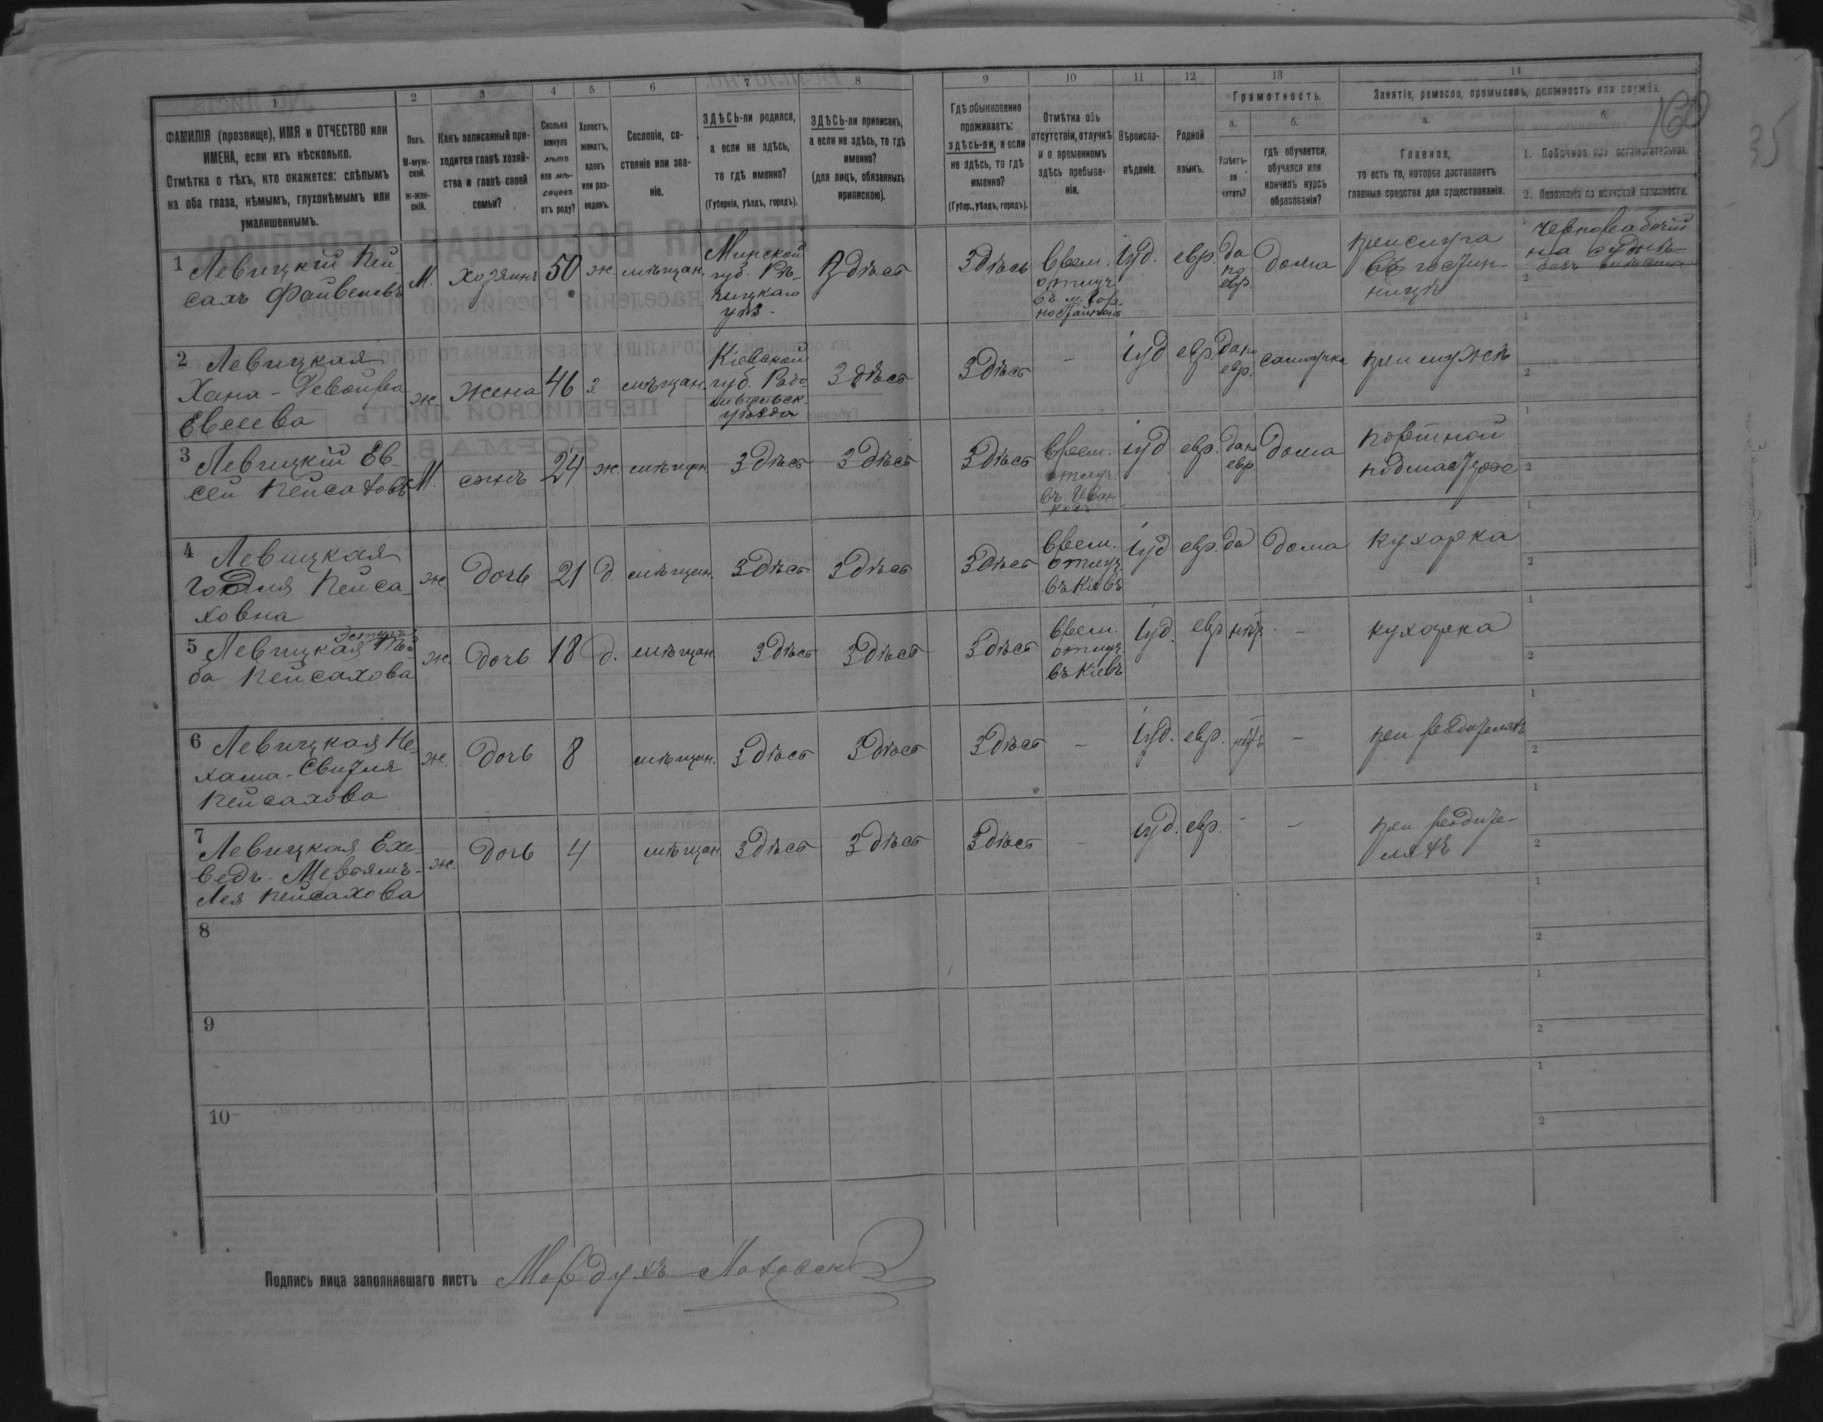 1 2 3 4 5 6 7 8 9 10 11 12 13 14
ФАМИЛІЯ (прозвище), ИМЯ и ОТЧЕСТВО или
ИМЕНА, если ихъ нѣсколько.
Отмѣтка о тѣхъ, кто окажется: слѣпымъ
на оба глаза, нѣмымъ, глухонѣмымъ или
умалишеннымъ.
Полъ.
М-муж-
ской.
Ж-жен-
скій.
Какъ записанный при-
ходится главѣ хозяй-
ства и главѣ своей
семьи?
Сколько
минуло
лѣтъ
или мѣ-
сяцевъ
отъ роду?
Холостъ,
женатъ,
вдовъ
или раз-
веденъ.
Сословіе, со-
стояніе или зва-
ніе.
ЗДѢСЬ-ли родился,
а если не здѣсь,
то гдѣ именно?
(Губернія, уѣздъ, городъ).
ЗДѢСЬ-ли приписанъ,
а если не здѣсь, то гдѣ
именно?
(для лицъ, обязанныхъ
припискою).
Гдѣ обыкновенно
проживаетъ:
здѣсь-ли, а если
не здѣсь, то гдѣ
именно?
(Губер., уѣздъ, городъ).
Отмѣтка объ
отсутствіи, отлучкѣ
и о временномъ
здѣсь пребыва-
ніи.
Вѣроиспо-
вѣданіе.
Родной
языкъ.
Грамотность.
а.
Умѣетъ-
ли
читать?
б.
гдѣ обучается,
обучался или
кончилъ курсъ
образованія?
Занятіе, ремесло, промыселъ, должность или служба.
а.
Главное,
то есть то, которое доставляетъ
главныя средства для существованія.
б.
1. Побочное или вспомогательное.
2. Положеніе по воинской повинности.
160
35
1 Левицкій Пей-
сахъ Файвелевъ
М. хозяинъ 50 ж мѣщан.
Минской
губ. Рѣ-
чицкаго
уѣз.
Здѣсь Здѣсь
Врем.
отлуч.
іуд. евр. да
по
евр.
дома
прислуга
въ гостин-
ницѣ
чернорабочій
2 Левицкая
Хана-Двойра
Евсеева
ж. жена 46 з мѣщан.
Кіевской
губ. Радо-
мысльск
уѣзда
Здѣсь Здѣсь – іуд евр. да по
евр. самоучка при мужѣ
3 Левицкій Ев-
сей Пейсаховъ
М. сынъ 24 ж. мѣщан Здѣсь Здѣсь Здѣсь
Врем.
отлуч.
въ Иван-
ковъ
іуд евр. да по
евр дома
портной
подмастерье
4 Левицкая
Годля Пейса-
ховна
ж дочь 21 д. мѣщан. Здѣсь Здѣсь Здѣсь
Врем.
отлуч.
въ Кіевъ
іуд евр. да дома кухарка
5 Левицкая
ба Пейсахова
ж. дочь 18 д. мѣщан Здѣсь Здѣсь Здѣсь
Врем.
отлуч
въ Кіевъ
іуд. евр нѣт. – кухарка
6 Левицкая Не-
хама-Свитля
Пейсахова
ж. дочь 8 мѣщан. Здѣсь Здѣсь Здѣсь – іуд. евр. нѣтъ – при родителяхъ
7 Левицкая Ехе-
ведъ-Мерьямъ-
Лея Пейсахова
ж. дочь 4 мѣщан Здѣсь Здѣсь Здѣсь – іуд. евр. – –
при родите-
ляхъ
8
9
10
Подпись лица заполнявшаго листъ Мордухъ